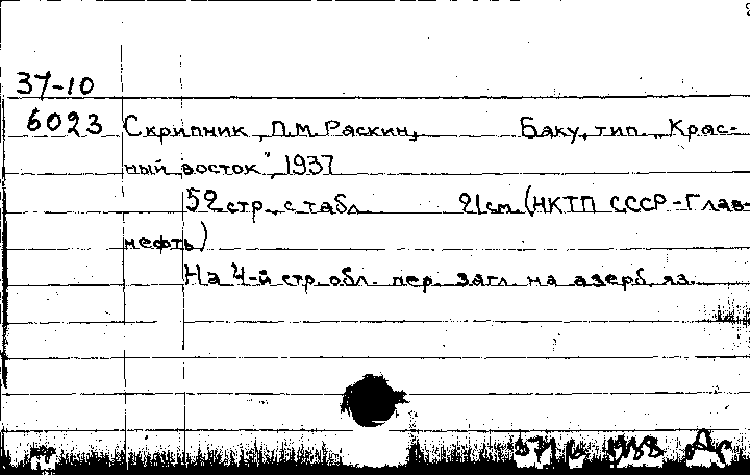 37-10
6023 Скрипник, П.М. Раскин, Баку, тип. „Крас-
ный восток", 1937
52 стр., с табл. 21 см. (НКТП СССР - Глав-
нефть)
На 4-й стр. обл. пер. загл. на азерб. яз.
1938